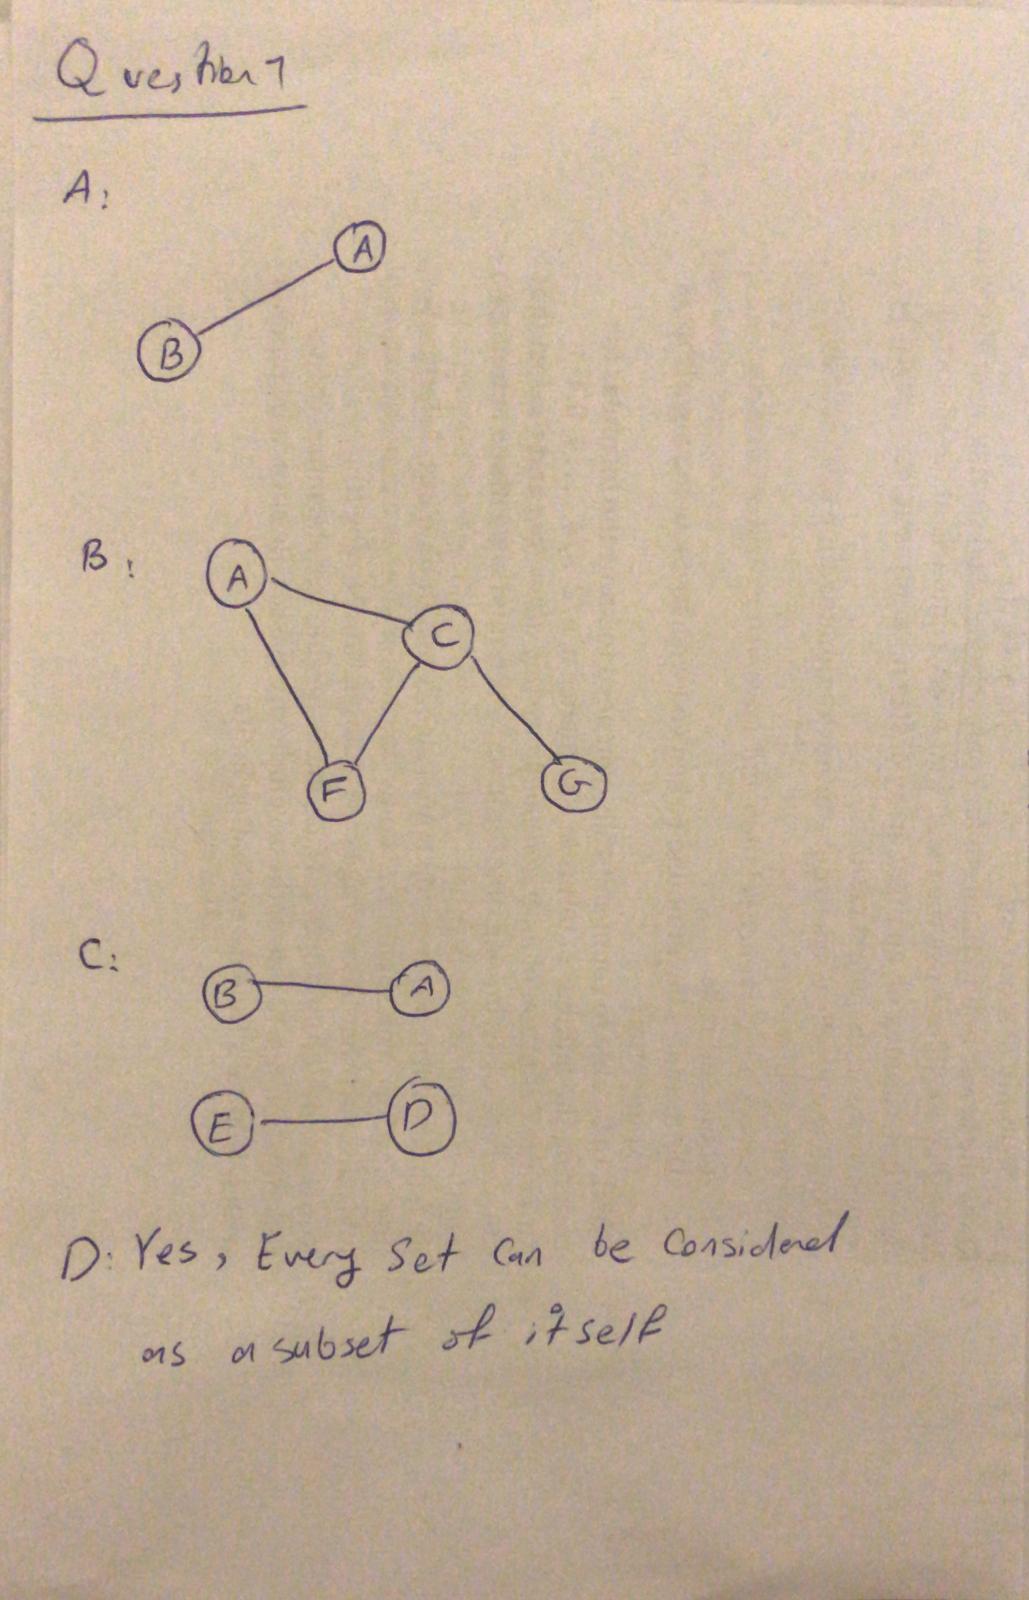 Question 1
A:
A
B
B:
A
C
F
G
C:
B A
E D
D: Yes, Every Set Can be Considered
as a subset of itself